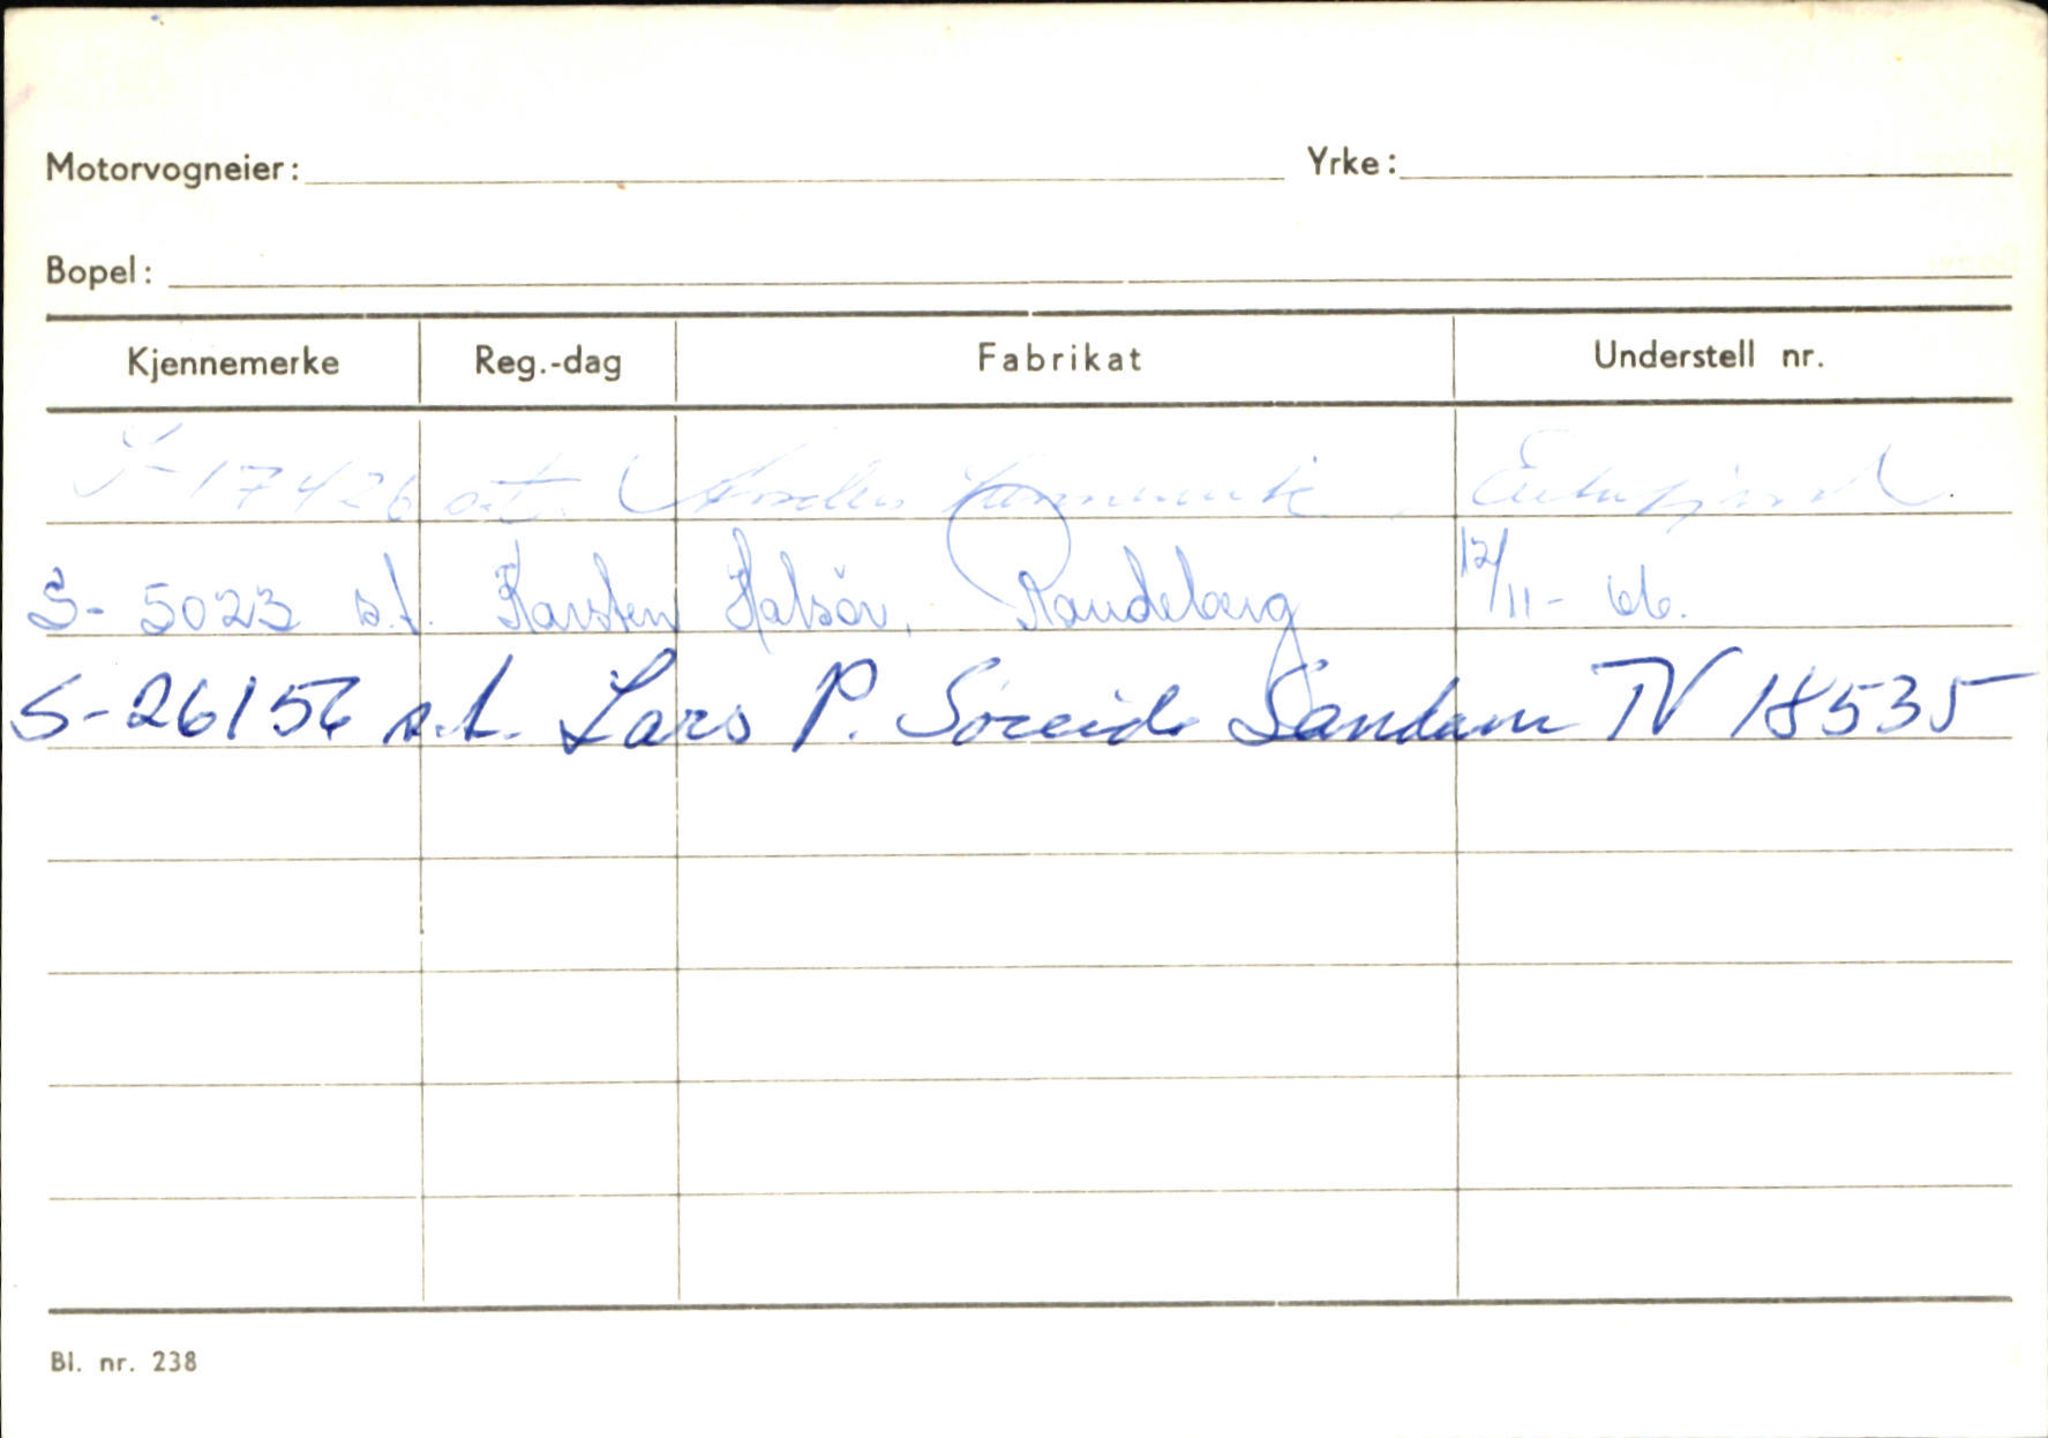 Motorvogneier: Yrke:
Bopel:
Kjennemerke Reg.-dag Fabrikat Understell nr.
S-17426
S-5023 s.t. Karsten Halsør, Raudeberg 12/11-66.
S-26156 s.t. Lars P. Søreide Sandane TV 18535
Bl. nr. 238